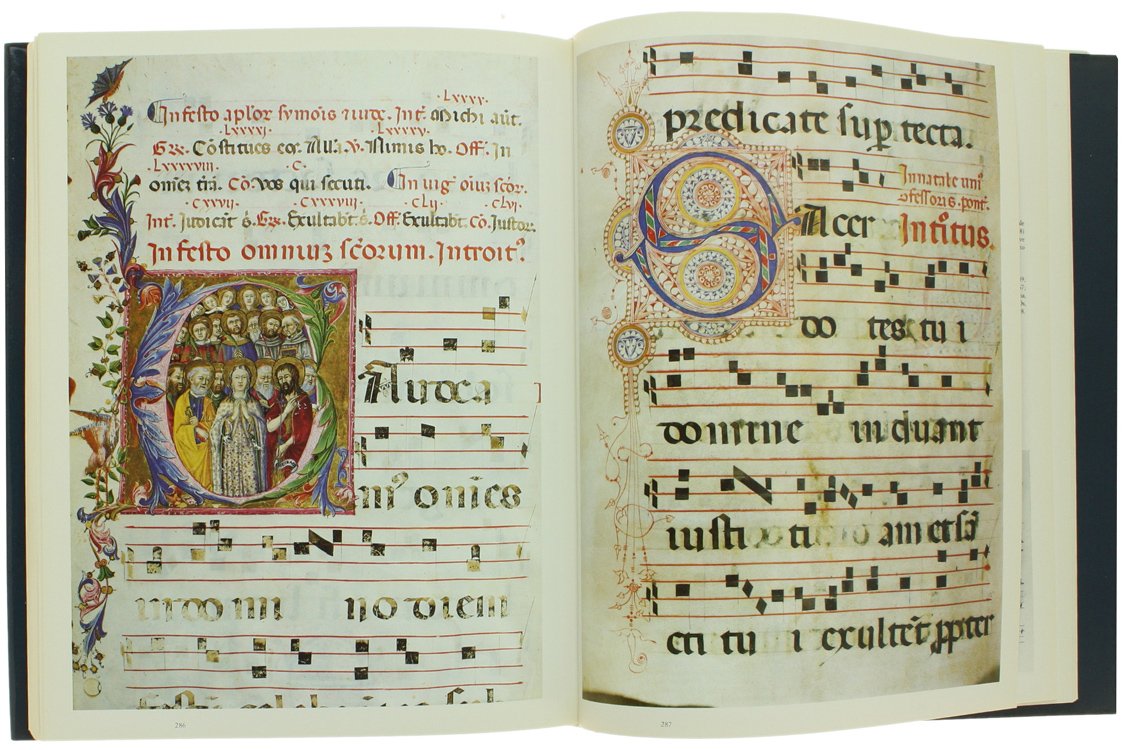 Lxxxx.
In festo aplor symois iude. Int. Michi aut.
Lxxxxj. Lxxxxv.
Gr. Costitues eos. Alla. V. Nimis ho. Off. In
Lxxxxviii. C.
omez tra. Co. vos qui secuti. In vig oium scor.
Cxxvij. Cxxxviii. CLij. CLvj.
Int. Judicat s. Gr. Exultabt s. Off. Exultabt. Co. Justor.
In festo omniuz scorum. Introit.
Audea
m omes
in do mi no diem
festu celebra
286
predicate sup tecta.
In natale uni
fessoris pont.
Acer Introitus.
do tes tu i
domine induant
iusti ti am et sci
et tu i exultet ppter
287